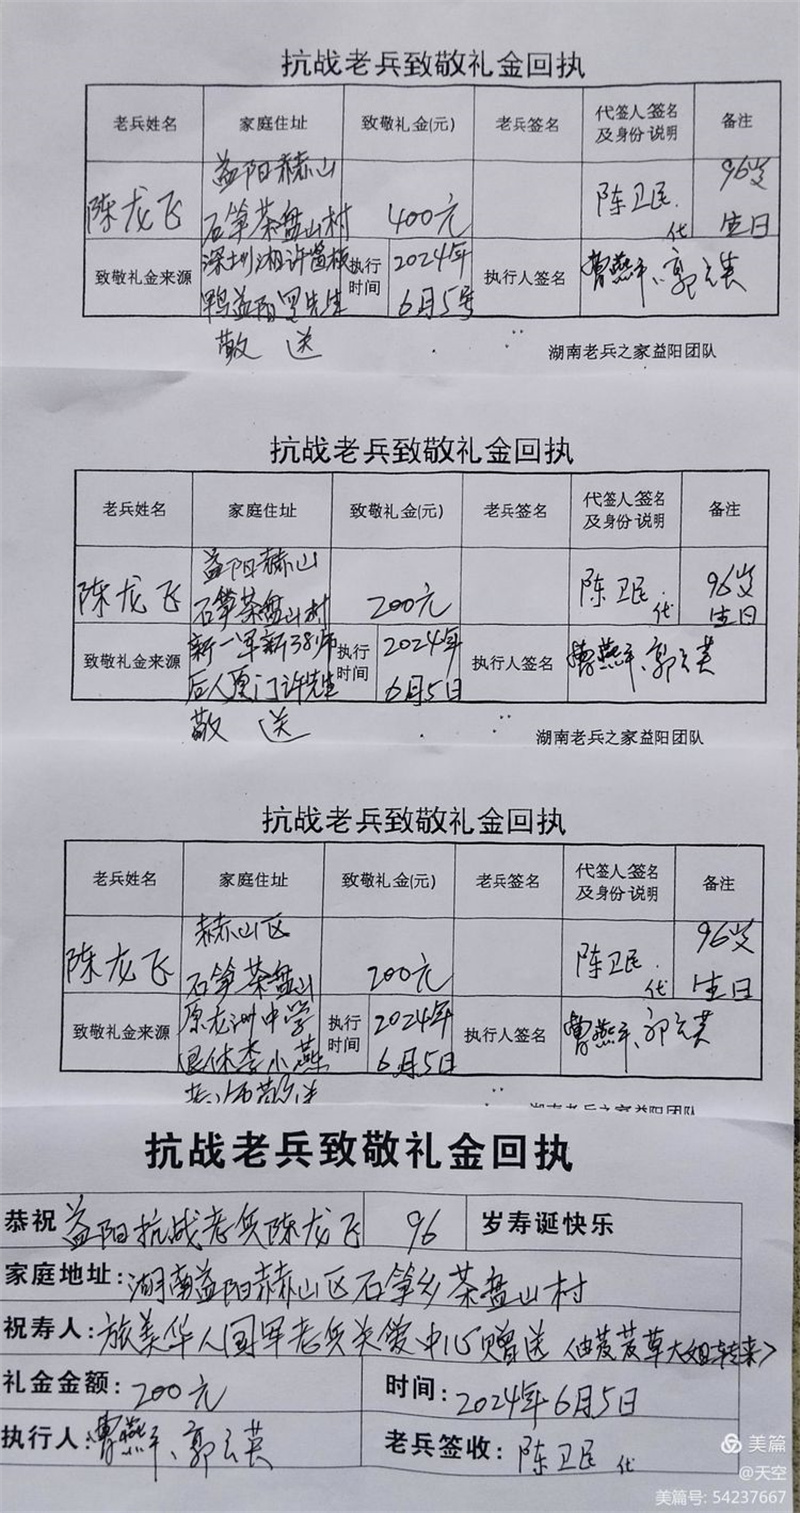 抗战老兵致敬礼金回执
老兵姓名 家庭住址 致敬礼金(元) 老兵签名 代签人签名及身份说明 备注
陈龙飞 益阳赫山石笋茶盘山村 400元 陈卫民.代 96岁生日
致敬礼金来源 深圳湘许 鸭益阳罗先生 执行时间 2024年6月5号 执行人签名 曹燕平、郭云英
敬送
湖南老兵之家益阳团队
抗战老兵致敬礼金回执
老兵姓名 家庭住址 致敬礼金(元) 老兵签名 代签人签名及身份说明 备注
陈龙飞 益阳赫山石笋茶盘山村 200元 陈卫民.代 96岁生日
致敬礼金来源 新一军新38师后人厦门许先生 执行时间 2024年6月5日 执行人签名 曹燕平、郭云英
敬送
湖南老兵之家益阳团队
抗战老兵致敬礼金回执
老兵姓名 家庭住址 致敬礼金(元) 老兵签名 代签人签名及身份说明 备注
陈龙飞 赫山区石笋茶盘山 200元 陈卫民.代 96岁生日
致敬礼金来源 原龙洲中学退休李小燕 执行时间 2024年6月5日 执行人签名 曹燕平、郭云英
老师敬送
湖南老兵之家益阳团队
抗战老兵致敬礼金回执
恭祝 益阳抗战老兵陈龙飞 96 岁寿诞快乐
家庭地址: 湖南益阳赫山区石笋乡茶盘山村
祝寿人: 旅美华人国军老兵关爱中心赠送 芨芨草大姐转来>
礼金金额: 200元 时间: 2024年6月5日
执行人: 曹燕平、郭云英 老兵签收: 陈卫民 代
美篇
@天空
美篇号: 54237667